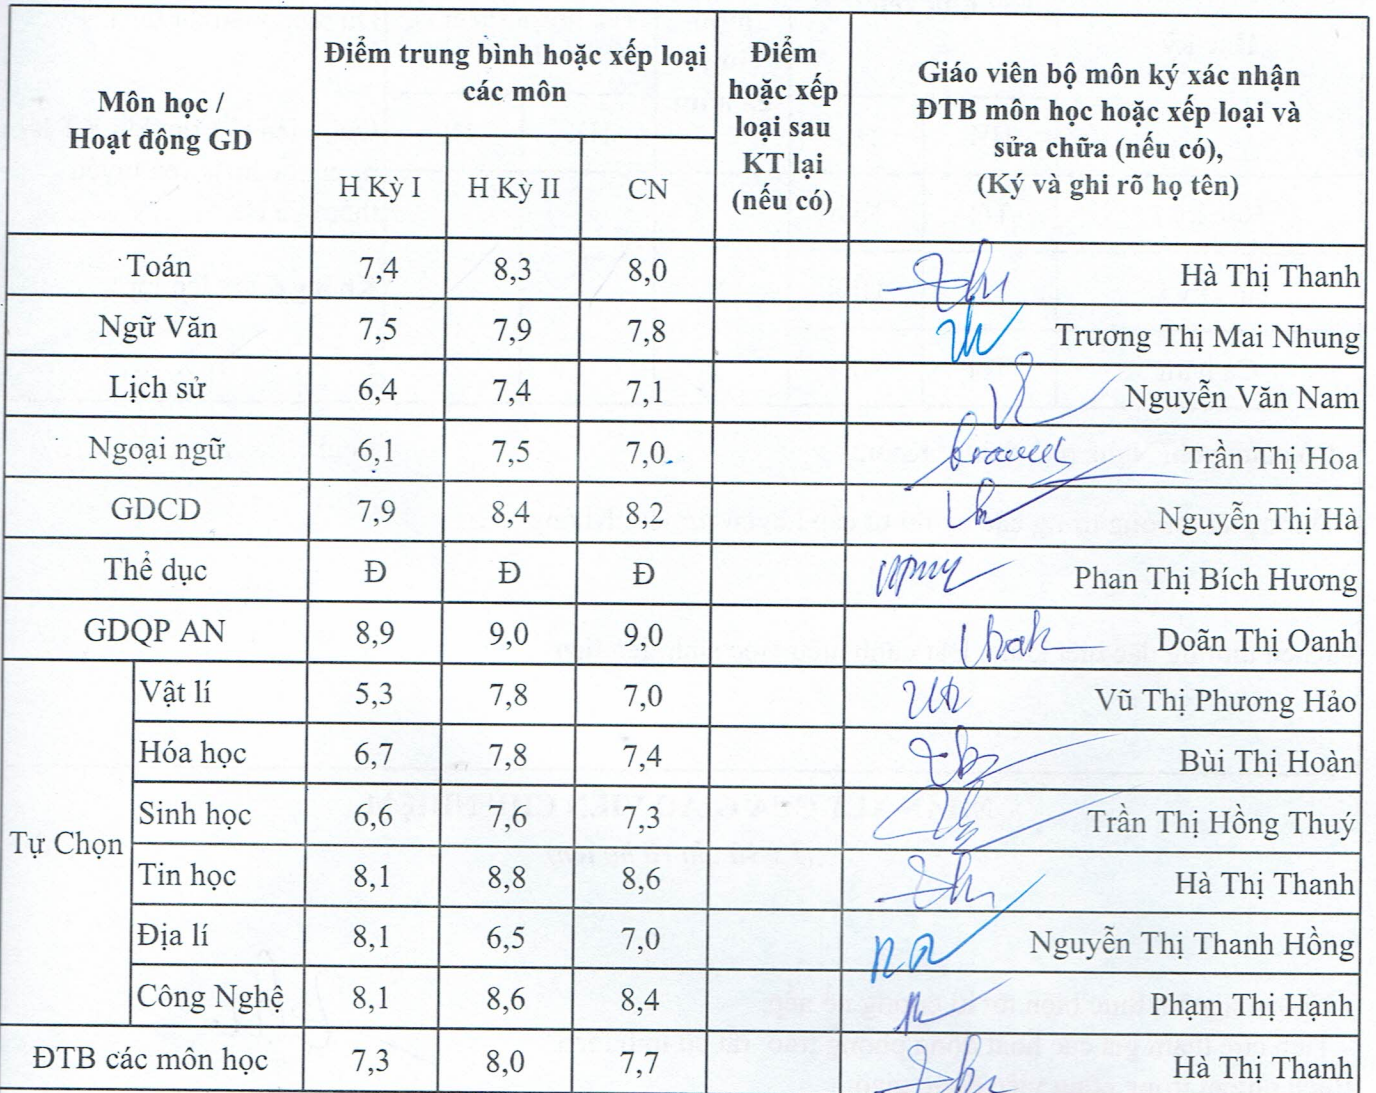 Môn học /
Hoạt động GD
Điểm trung bình hoặc xếp loại
các môn
Điểm
hoặc xếp
loại sau
KT lại
(nếu có)
Giáo viên bộ môn ký xác nhận
ĐTB môn học hoặc xếp loại và
sửa chữa (nếu có),
(Ký và ghi rõ họ tên)
H Kỳ I H Kỳ II CN
Toán 7,4 8,3 8,0 Hà Thị Thanh
Ngữ Văn 7,5 7,9 7,8 Trương Thị Mai Nhung
Lịch sử 6,4 7,4 7,1 Nguyễn Văn Nam
Ngoại ngữ 6,1 7,5 7,0 Trần Thị Hoa
GDCD 7,9 8,4 8,2 Nguyễn Thị Hà
Thể dục Đ Đ Đ Phan Thị Bích Hương
GDQP AN 8,9 9,0 9,0 Doãn Thị Oanh
Tự Chọn
Vật lí 5,3 7,8 7,0 Vũ Thị Phương Hảo
Hóa học 6,7 7,8 7,4 Bùi Thị Hoàn
Sinh học 6,6 7,6 7,3 Trần Thị Hồng Thuý
Tin học 8,1 8,8 8,6 Hà Thị Thanh
Địa lí 8,1 6,5 7,0 Nguyễn Thị Thanh Hồng
Công Nghệ 8,1 8,6 8,4 Phạm Thị Hạnh
ĐTB các môn học 7,3 8,0 7,7 Hà Thị Thanh